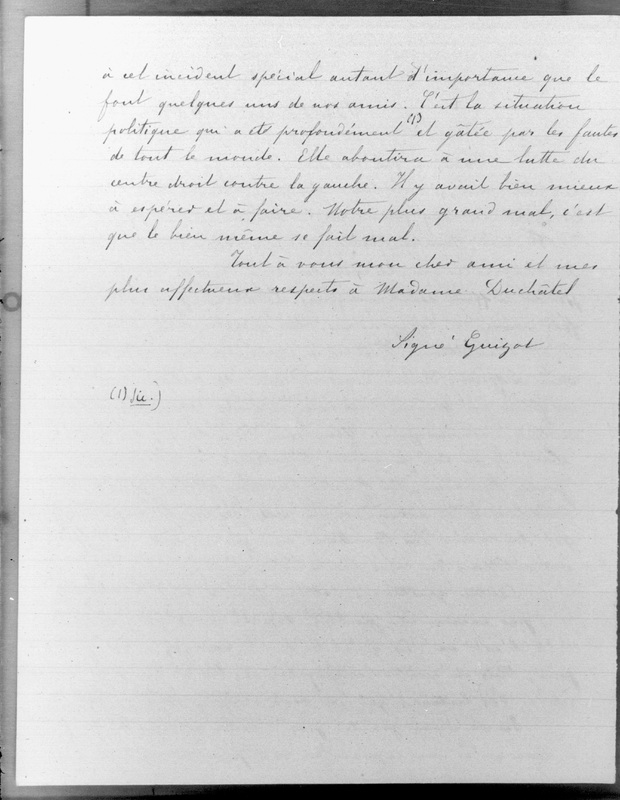 à cet incident spécial autant d'importance que le
font quelques uns de nos amis. C'est la situation
politique qui a été profondément (1) et gâtée par les fautes
de tout le monde. Elle aboutira à une lutte du
centre droit contre la gauche. Il y avait bien mieux
à espérer et à faire. Notre plus grand mal, c'est
que le bien même se fait mal.
Tout à vous mon cher ami et mes
plus affectueux respects à Madame Duchâtel
Signé Guizot
(1) sic.)